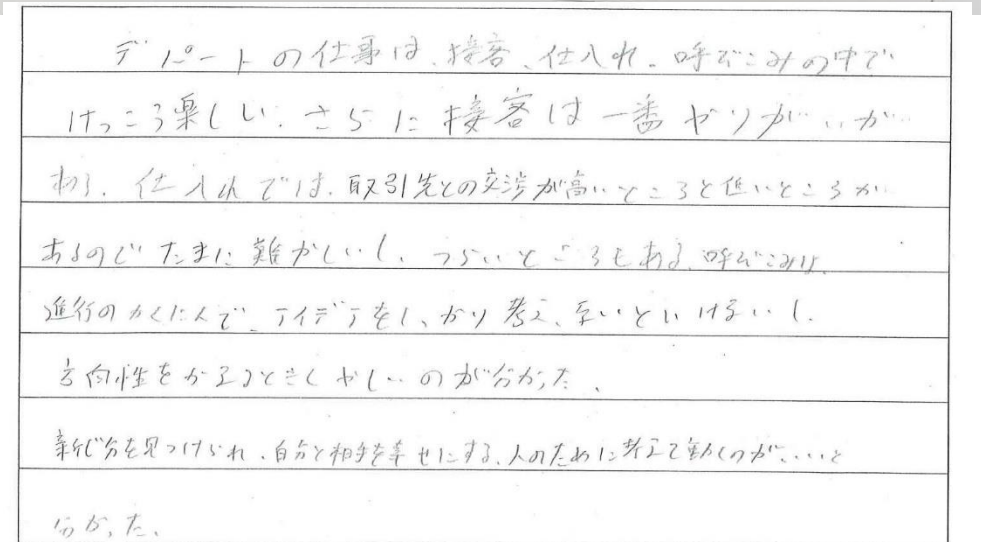 デパートの仕事は、接客、仕入れ、呼びこみの中で
けっこう楽しい。さらに接客は一番やりがいが
ある。仕入れでは、取引先との交渉が高いところと低いところが
あるのでたまに難かしいし、つらいところもある。呼びこみは、
進行のかくにんで、アイデアをしっかり考え、ないといけないし、
方向性をかえるときくやしいのが分かった。
新しい自分を見つけられ、自分と相手を幸せにする、人のために考えて動くのがいいと
分かった。